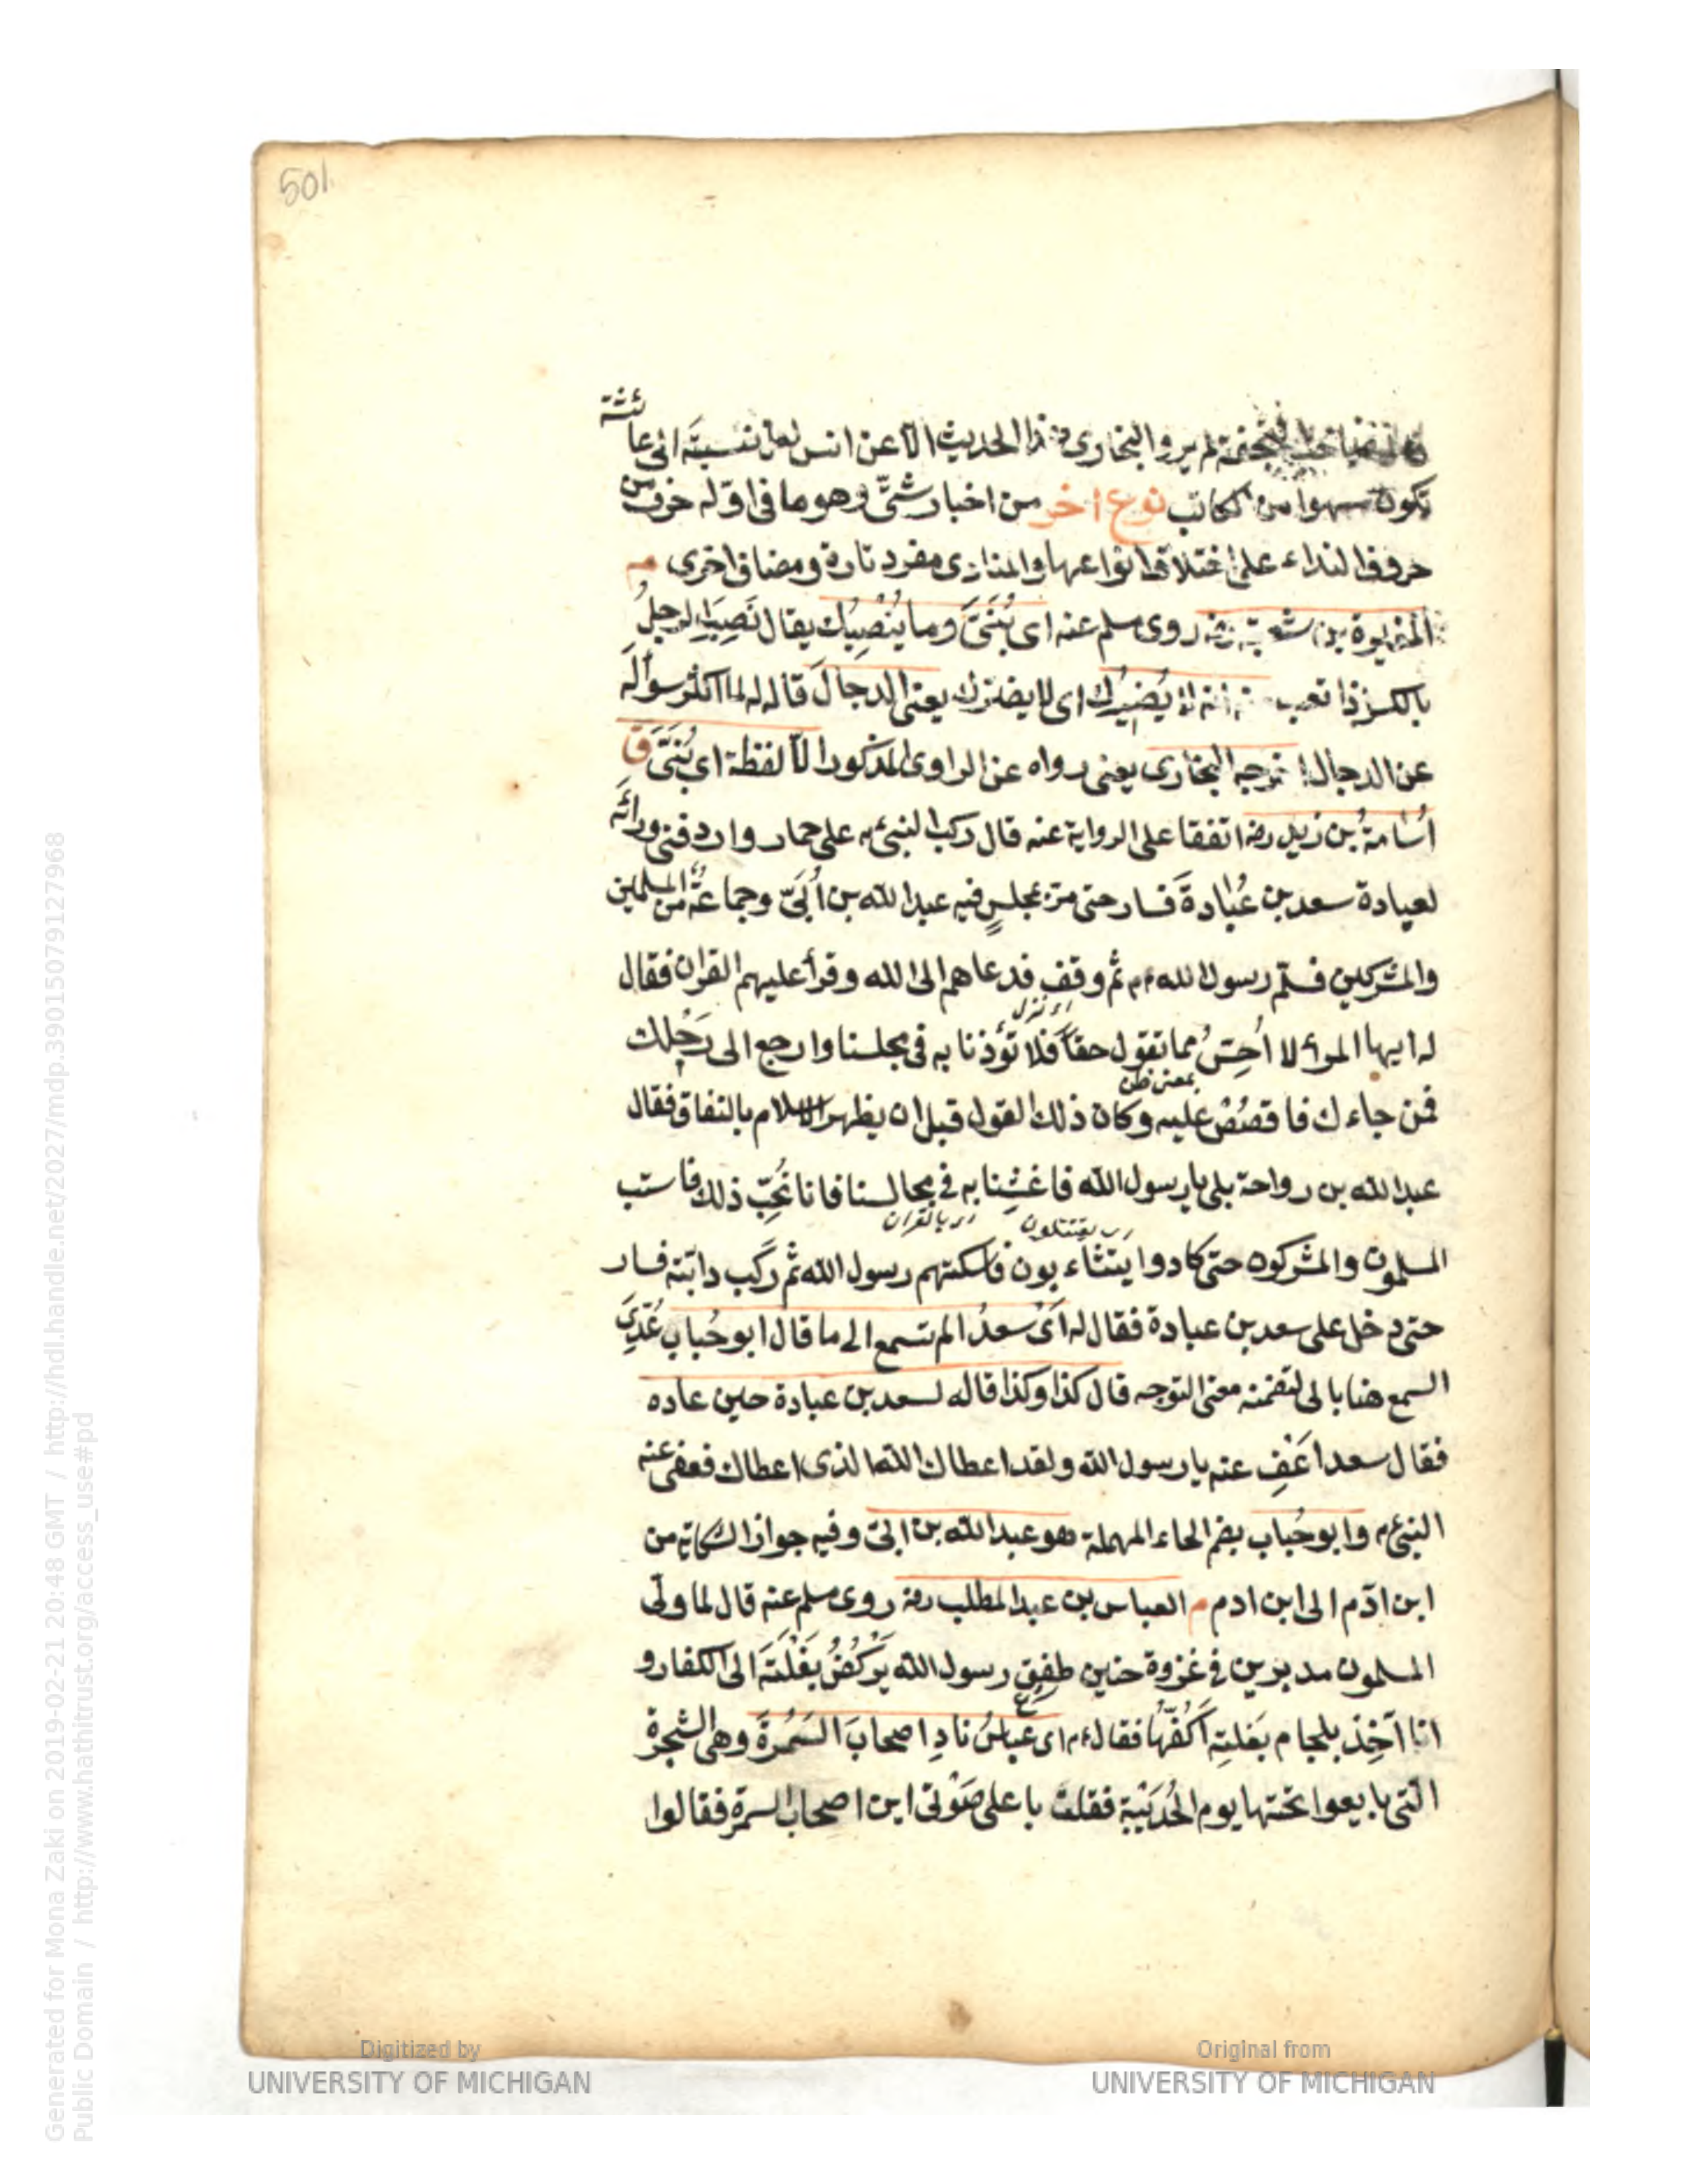 501
لم يرو البخارى هذا الحديث الا عن انس لعل نسبته الى عائشة
تكون سهوا من الكاتب نوع اخر من اخبار شتى وهو ما فى اوله حرف من
حروف النداء على اختلاف انواعها والمنادى مفرد تارة ومضاف اخرى م
المغيرة بن شعبة رضه روى مسلم عنه اى بُنَىَّ وما يُنْصِبُك يقال نَصِبَ الرجلُ
بالكسر اذا تعب منه انه لا يُضيرُك اى لا يضرك يعنى الدجالَ قاله له لما اكثر سؤاله
عن الدجال اخرجه البخارى يعنى رواه عن الراوى المذكور الا لفظة اى بُنَىَّ ق
اُسَامَةُ بن زيد رضه اتفقا على الرواية عنه قال ركب النبى م على حمار واردفنى ورائه
لعيادة سعد بن عُبَادةَ فسار حتى مر بمجلسٍ فيه عبد الله بن اُبَىّ وجماعةٌ من المسلمين
والمشركين فسلم رسول الله م ثم وقف فدعاهم الى الله وقرأ عليهم القران فقال
اى نزل
له ايها المرأ لا اُحِسّ مما تقول حقاً فلا تؤذنا به فى مجلسنا وارجع الى رَحْلك
بمعنى ظن
فمن جاءك فاقصُصْ عليه وكان ذلك القول قبل ان يظهر الاسلام بالنفاق فقال
عبد الله بن رواحة بلى يا رسول الله فاغشِنا به فى مجالسنا فانا نُحِبّ ذلك فاستب
اى يقتتلون اى بالقران
المسلمون والمشركون حتى كادوا يتثاءبون فاسكتهم رسول الله ثم رَكب دابته فسار
حتى دخل على سعد بن عبادة فقال له اَىْ سعدُ الم تسمع الى ما قال ابو حُباب عُدِّىَ
السمع هنا بالى لتضمنه معنى التوجه قال كذا وكذا قاله لسعد بن عبادة حين عاده
فقال سعد اعْفِ عنه يا رسول الله ولقد اعطاك الله الذى اعطاك فعفى عنه
النبى م وابو حُباب بضم الحاء المهملة هو عبد الله بن ابىّ وفيه جواز الشكاية من
ابن ادم الى ابن ادم م العباس بن عبد المطلب رضه روى مسلم عنه قال لما ولّى
المسلمون مدبرين فى غزوة حنين طفِق رسول الله يَرْكُضُ بَغْلَتَه الى الكفار و
انا آخِذ بلجام بَغلتِه اَكُفّهَا فقال م اى عباسُ نادِ اصحابَ السَمُرةَ وهى الشجرة
التى بايعوا تحتها يوم الحُدَيْبِية فقلت باعلى صَوْتى اين اصحاب السمرة فقالوا
Generated for Mona Zaki on 2019-02-21 20:48 GMT / http://hdl.handle.net/2027/mdp.39015079127968
Public Domain / http://www.hathitrust.org/access_use#pd
Digitized by
UNIVERSITY OF MICHIGAN
Original from
UNIVERSITY OF MICHIGAN